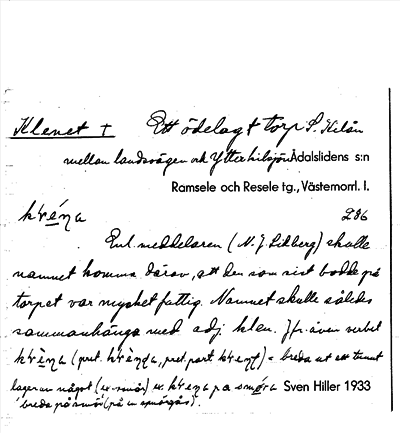 Klenet † Ett ödelagt torp S. Kilån
mellan landsvägen och Ytterhilsjön Ådalslidens s:n
Ramsele och Resele tg., Västernorrl. l.
286
Enl. meddelaren (N. J. Lidberg) skulle
namnet komma därav, att den som sist bodde på
torpet var mycket fattig. Namnet skulle således
sammanhänga med adj. klen. Jfr även verbet
(pret. , pret. part. ) = breda ut ett tunnt
lager av något (ex. smör) ex. Sven Hiller 1933
'breda på smör (på en smörgås).'